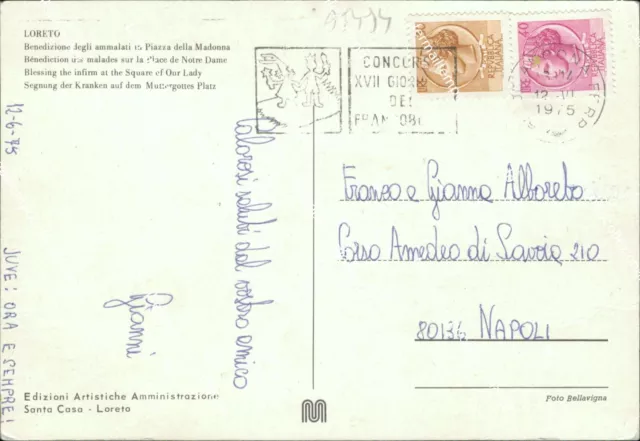 LORETO
Benedizione degli ammalati in Piazza della Madonna
Bénédiction des malades sur la Place de Notre Dame
Blessing the infirm at the Square of Our Lady
Segnung der Kranken auf dem Muttergottes Platz
CONCORS
XVII GIOR
DEL
FRANCOBOL
12
1975
40
12-6-75
Calorosi saluti dal vostro amico
Gianni
JUVE: ORA E SEMPRE!
Franco e Gianna Alborebo
Corso Amedeo di Savoia 210
80136 NAPOLI
Edizioni Artistiche Amministrazione
Santa Casa - Loreto
Foto Bellavigna